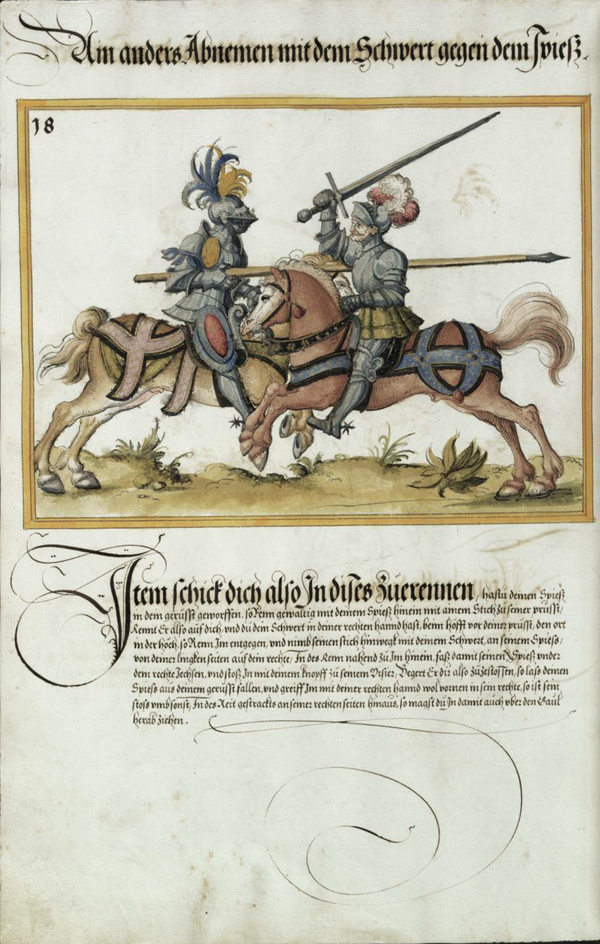 Ain anders Abnemen mit dem Schwert gegen dem Spieß.
18
Item schick dich also In dises Zuerennen, hastu deinen Spieß
in dem gerüsst geworffen, so Renn gewaltig mit deinem Spieß hinein mit ainem Stich zu seiner prüsst,
Rennt Er also auf dich, und du dem Schwert in deiner rechten hannd hast, beim hefft vor deiner prüsst, den ort
in der höch, so Renn Im entgegen, und nimb seinen stich hinwegk mit deinem Schwert, an seinem Spiess,
von deiner lingken seiten auf dein rechte, In des Renn nahend zu Im hinein, faß damit seinen Spieß under
dein rechte Jechsen, und stoß Im mit deinem knopff zu seinem Visier, Begert Er dir also Zuzestossen, so laß deinen
Spiess aus deinem gerüsst fallen, und greiff Im mit deiner rechten hannd wol vornen in sein rechte, so ist sein
stoß umbsonst, In des Reit gestrackts an seiner rechten seiten hinaus, so magst du In damit auch uber den Gaul
herab ziehen.